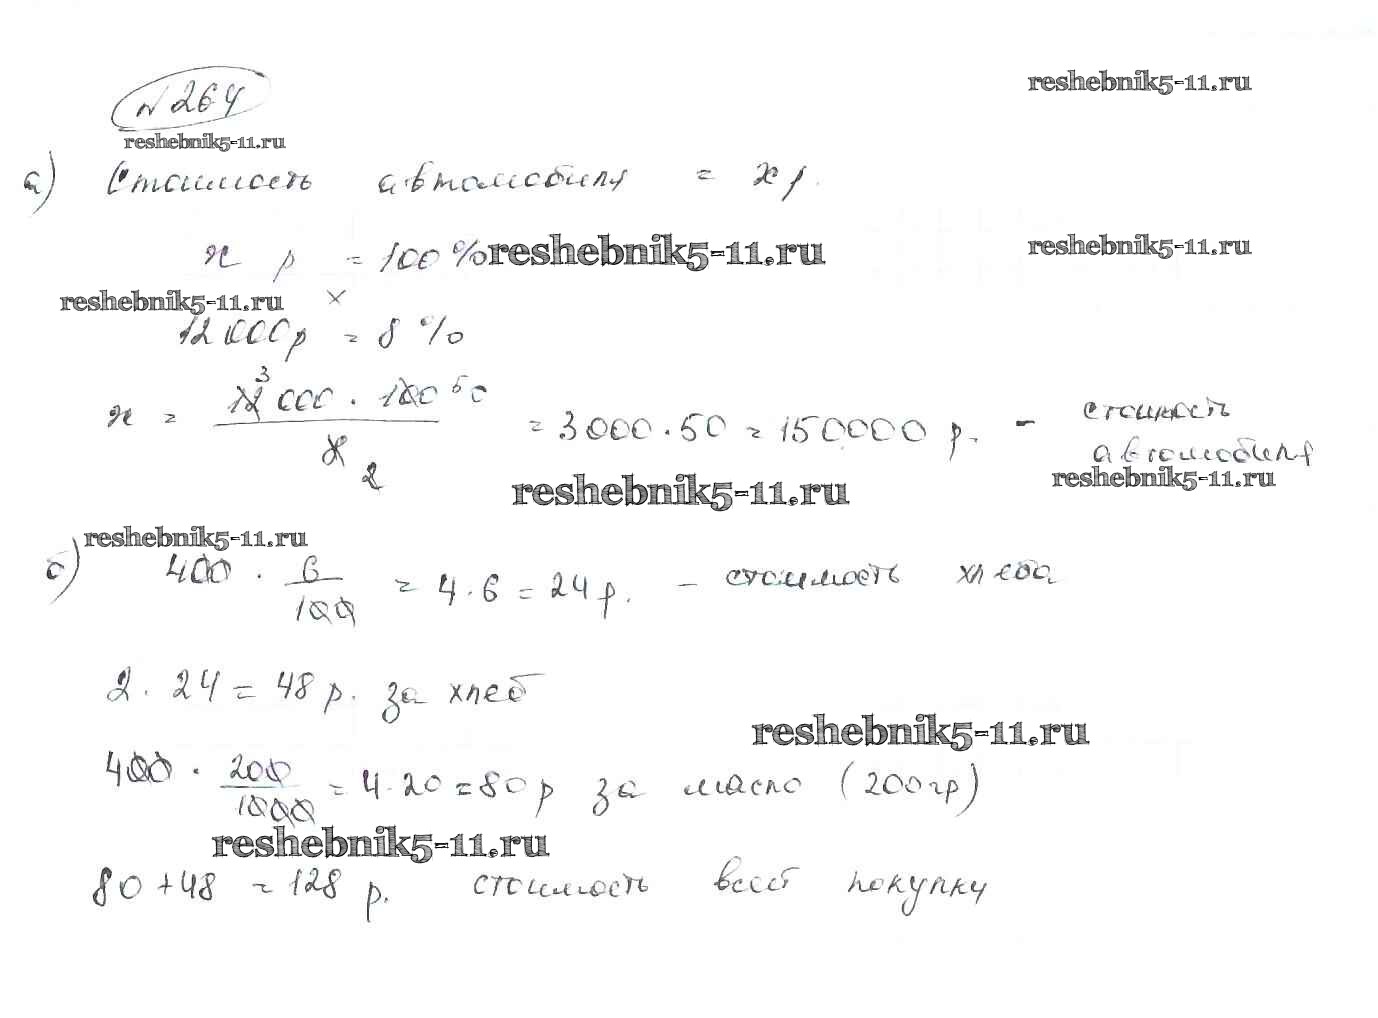 № 264
reshebnik5-11.ru
reshebnik5-11.ru
а) Стоимость автомобиля = x р.
x р = 100 %
reshebnik5-11.ru
reshebnik5-11.ru
reshebnik5-11.ru
×
12 000 р = 8 %
x = 12 3 000 · 100 50 / 8 2 = 3 000 · 50 = 150000 р. - стоимость
автомобиля
reshebnik5-11.ru
reshebnik5-11.ru
reshebnik5-11.ru
б) 400 · 6/100 = 4 · 6 = 24 р. - стоимость хлеба
2 · 24 = 48 р. за хлеб
reshebnik5-11.ru
400 · 200/1000 = 4 · 20 = 80 р за масло (200 гр)
reshebnik5-11.ru
80 + 48 = 128 р. стоимость всей покупки